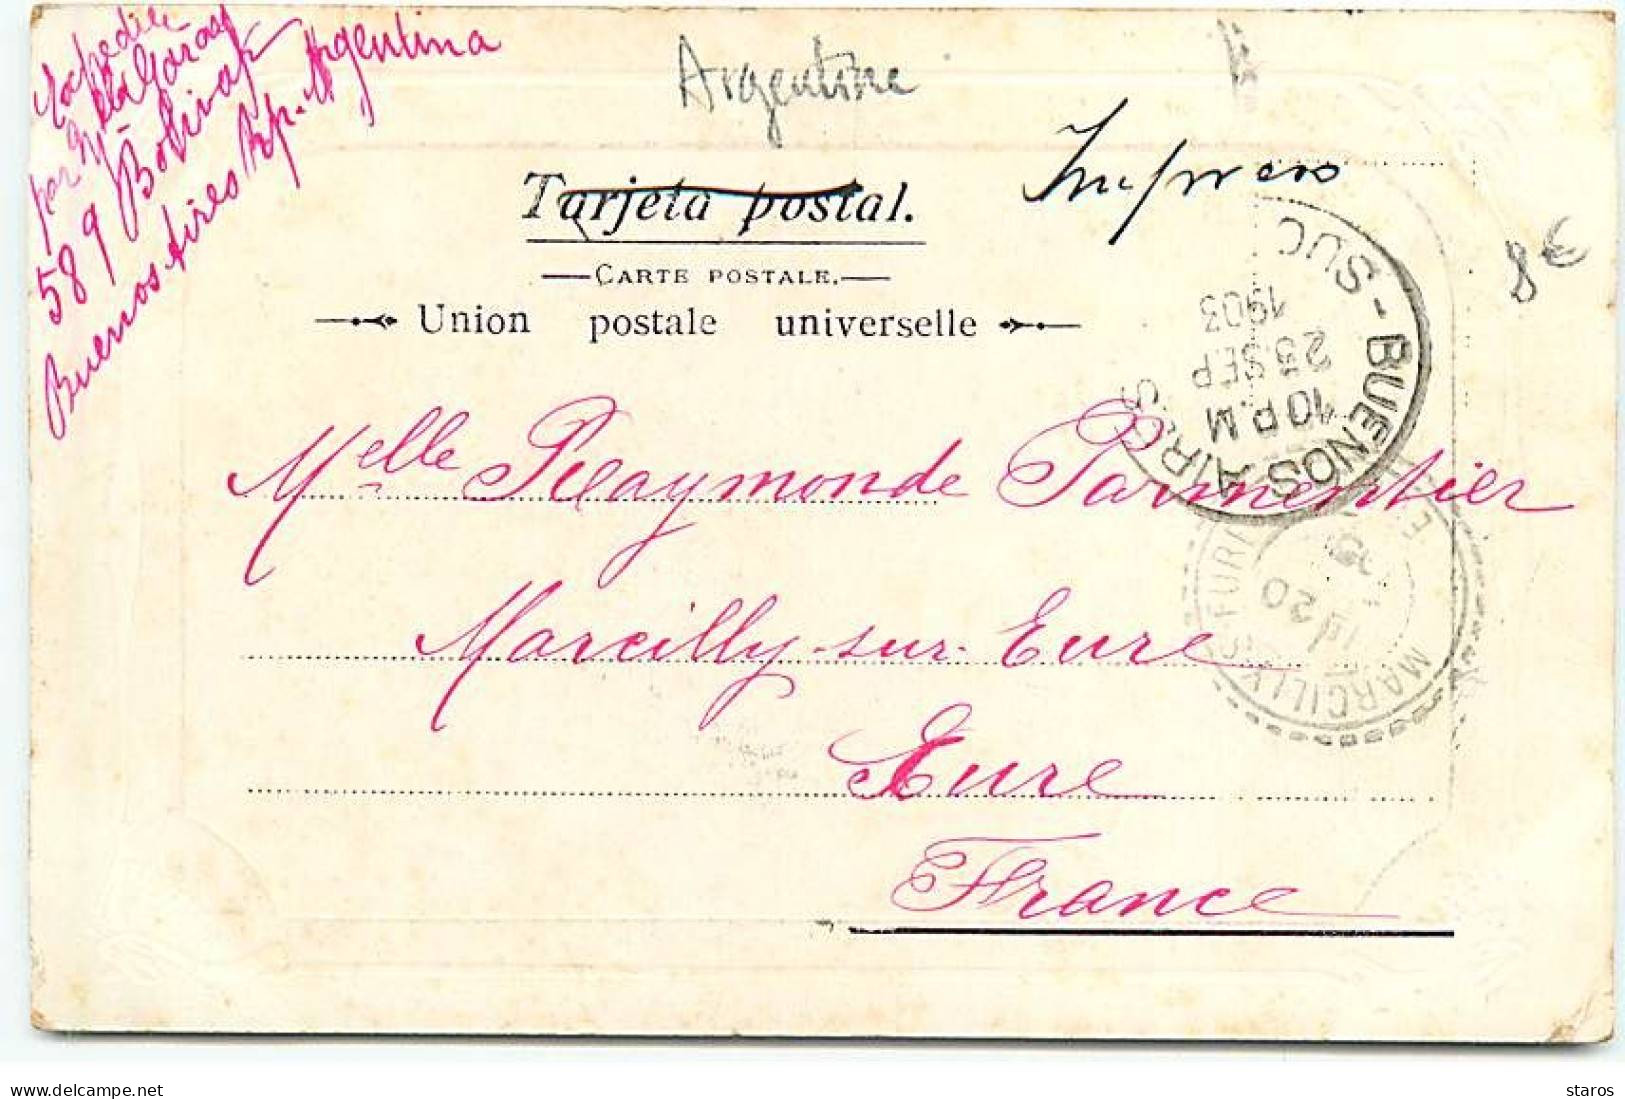 Expédiée
par
589 Bolivar
Buenos Aires Rp. Argentina
Argentine
Impreso
Tarjeta postal.
CARTE POSTALE.
Union postale universelle
8€
SUC - BUENOS AIRES
1903
25 SEP
10 P.M
Melle Raymonde Parmentier
Marcilly-sur-Eure
Eure
France
MARCILLY-S-EURE
EURE
20
delcampe.net
staros